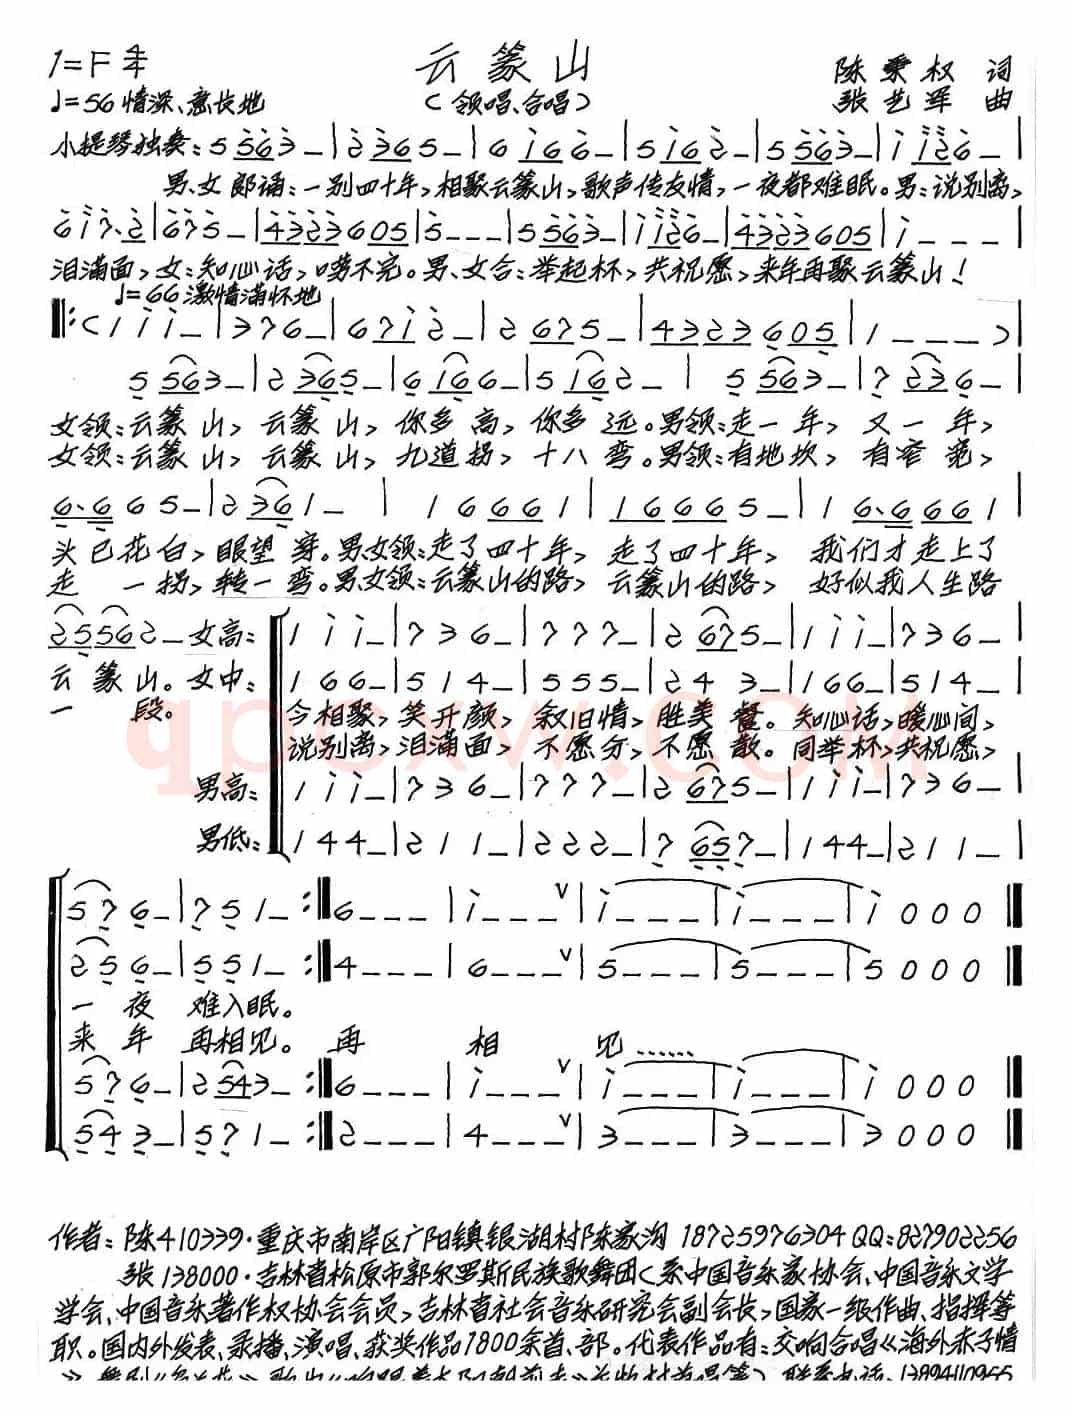 1=F 4/4
云篆山
陈秉权 词
♩=56 情深、意长地
（领唱、合唱）
张艺军 曲
小提琴独奏：5 5 6 3 – | 2 3 6 5 – | 6 1 6 6 – | 5 1 6 2 – | 5 5 6 3 – | 1 1 2 6 – |
男、女郎诵：一别四十年，相聚云篆山，歌声传友情，一夜都难眠。男：说别离，
6 1 7. 2 | 6 7 5 – | 4 3 2 3 6 0 5 | 5 – – – | 5 5 6 3 – | 1 1 2 6 – | 4 3 2 3 6 0 5 | 1 – – – |
泪满面，女：知心话，唠不完。男、女合：举起杯，共祝愿，来年再聚云篆山！
♩=66 激情满怀地
‖:（1 1 1 – | 3 7 6 – | 6 7 1 2 – | 2 6 7 5 – | 4 3 2 3 6 0 5 | 1 – – – ）|
5 5 6 3 – | 2 3 6 5 – | 6 1 6 6 – | 5 1 6 2 – | 5 5 6 3 – | 7 2 3 6 – |
女领：云篆山，云篆山，你多高，你多远。男领：走一年，又一年，
女领：云篆山，云篆山，九道拐，十八弯。男领：有地坎，有窄宽，
6. 6 6 5 – | 2 3 6 1 – | 1 6 6 6 1 | 1 6 6 6 5 – | 1 6. 6 6 6 1 |
头已花白，眼望穿。男女领：走了四十年，走了四十年，我们才走上了
走一拐，转一弯。男女领：云篆山的路，云篆山的路，好似我人生路
2 5 5 6 2 – 女高：1 1 1 – | 7 3 6 – | 7 7 7 – | 2 6 7 5 – | 1 1 1 – | 7 3 6 – |
云篆山。女中：1 6 6 – | 5 1 4 – | 5 5 5 – | 2 4 3 – | 1 6 6 – | 5 1 4 – |
一段。 今相聚，笑开颜，叙旧情，胜美餐。知心话，暖心间，
说别离，泪满面，不愿分，不愿散。同举杯，共祝愿，
qpcxw.com
男高：1 1 1 – | 7 3 6 – | 7 7 7 – | 2 6 7 5 – | 1 1 1 – | 7 3 6 – |
男低：1 4 4 – | 2 1 1 – | 2 2 2 – | 7 6 5 7 – | 1 4 4 – | 2 1 1 – |
5 7 6 – | 7 5 1 – :‖ 6 – – – | 1 – – – V | 1 – – – | 1 – – – | 1 0 0 0 ‖
2 5 6 – | 5 5 1 – :‖ 4 – – – | 6 – – – V | 5 – – – | 5 – – – | 5 0 0 0 ‖
一夜难入眠。
来年再相见。再相见……
5 7 6 – | 2 5 4 3 – :‖ 6 – – – | 1 – – – V | 1 – – – | 1 – – – | 1 0 0 0 ‖
5 4 3 – | 5 7 1 – :‖ 2 – – – | 4 – – – V | 3 – – – | 3 – – – | 3 0 0 0 ‖
作者：陈410339·重庆市南岸区广阳镇银湖村陈家沟 18725976304 QQ：827902256
张138000·吉林省松原市郭尔罗斯民族歌舞团（系中国音乐家协会、中国音乐文学
学会、中国音乐著作权协会会员，吉林省社会音乐研究会副会长，国家一级作曲、指挥等
职。国内外发表、录播、演唱、获奖作品1800余首、部。代表作品有：交响合唱《海外赤子情